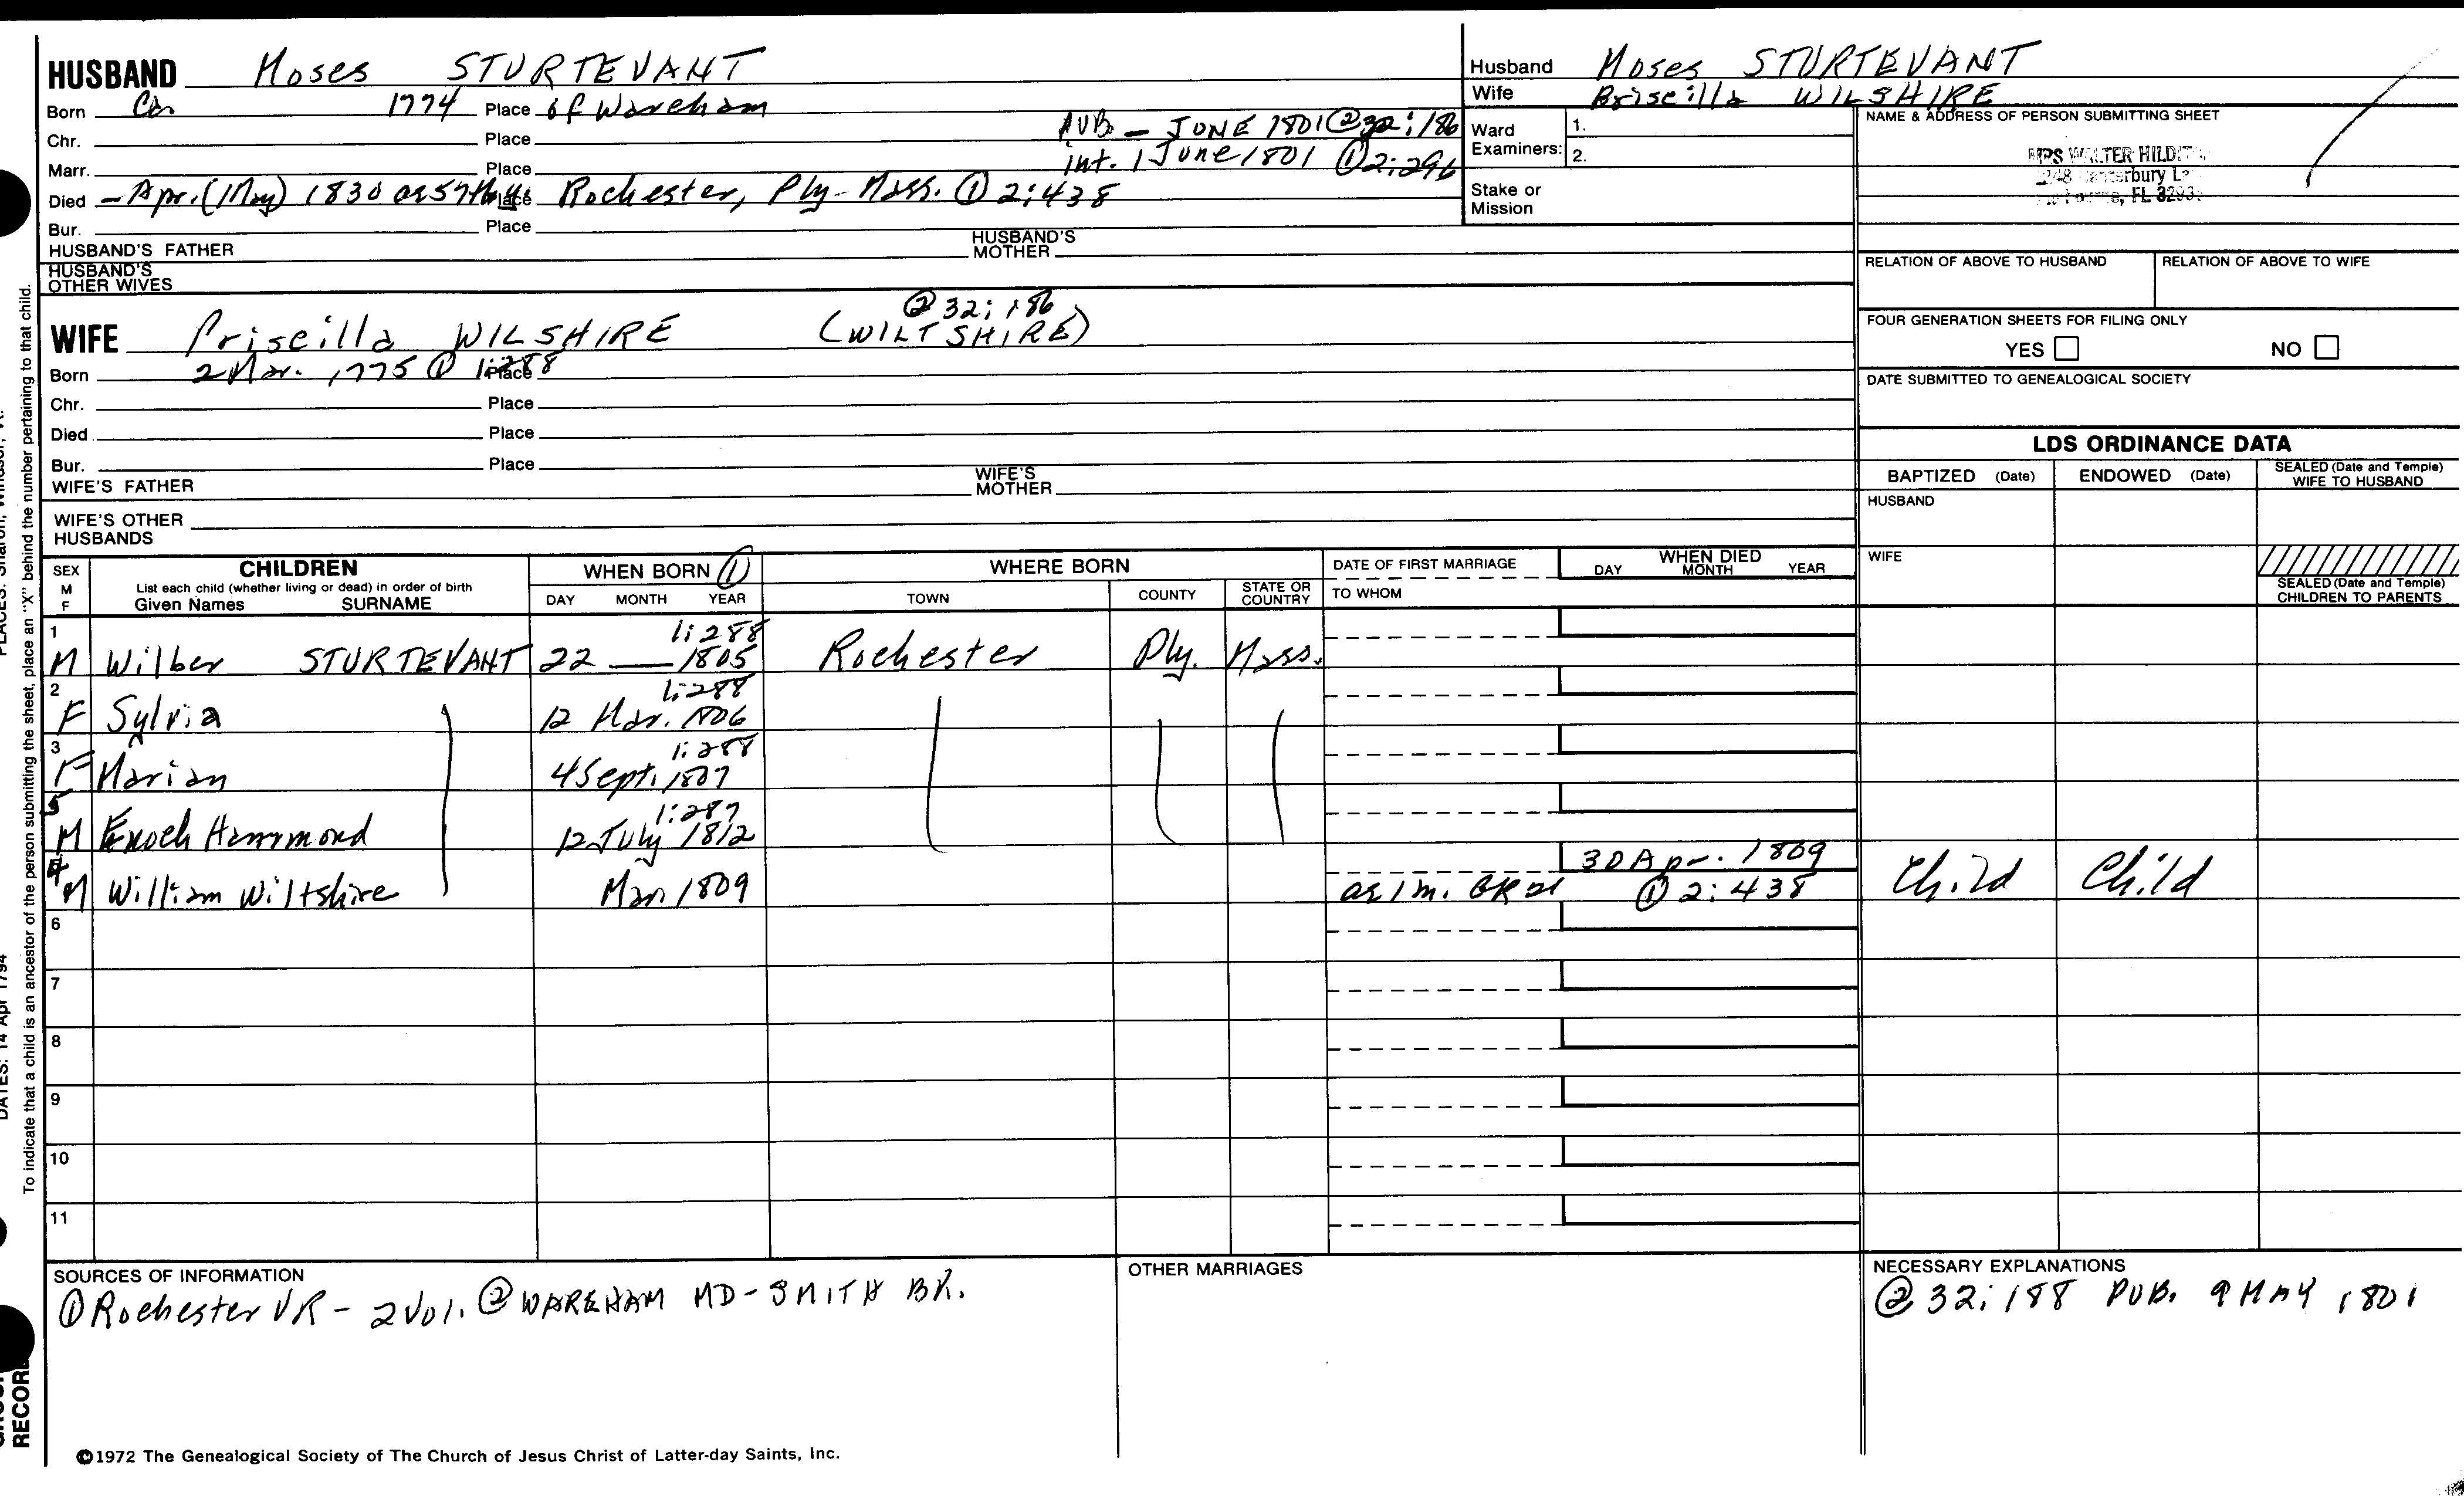 HUSBAND Moses STURTEVANT
Born Ca. 1774 Place of Wareham
Chr. Place
PUB - JUNE 1801 ② 32:186
Marr. Place
int. 1 June 1801 ① 2:296
Died - Apr. (May) 1830 Place Rochester, Ply- Mass. ① 2:438
Bur. Place
HUSBAND'S FATHER HUSBAND'S MOTHER
HUSBAND'S OTHER WIVES
② 32:186
WIFE Priscilla WILSHIRE (WILTSHIRE)
Born 2 Mar. 1775 ① 1:288 Place
Chr. Place
Died Place
Bur. Place
WIFE'S FATHER WIFE'S MOTHER
WIFE'S OTHER HUSBANDS
Husband Moses STURTEVANT
Wife Priscilla WILSHIRE
Ward Examiners: 1.
2.
Stake or Mission
NAME & ADDRESS OF PERSON SUBMITTING SHEET
MRS WALTER
Canterbury
FL
RELATION OF ABOVE TO HUSBAND RELATION OF ABOVE TO WIFE
FOUR GENERATION SHEETS FOR FILING ONLY
YES NO
DATE SUBMITTED TO GENEALOGICAL SOCIETY
LDS ORDINANCE DATA
BAPTIZED (Date) ENDOWED (Date) SEALED (Date and Temple) WIFE TO HUSBAND
HUSBAND
WIFE
SEALED (Date and Temple) CHILDREN TO PARENTS
SEX M F CHILDREN WHEN BORN ① WHERE BORN DATE OF FIRST MARRIAGE WHEN DIED
List each child (whether living or dead) in order of birth
Given Names SURNAME DAY MONTH YEAR TOWN COUNTY STATE OR COUNTRY TO WHOM DAY MONTH YEAR
1 1:288
M Wilber STURTEVANT 22 — 1805 Rochester Ply. Mass.
2 1:288
F Sylvia 12 Mar. 1806
3 1:288
F Marian 4 Sept. 1807
5 1:287
M Enoch Hammond 12 July 1812
4 30 Apr. 1809
M William Wiltshire Mar 1809 ae 1 m. GR 21 ① 2:438 Child Child
6
7
8
9
10
11
SOURCES OF INFORMATION
① Rochester VR - 2 Vol. ② WAREHAM MD - SMITH BK.
OTHER MARRIAGES
NECESSARY EXPLANATIONS
② 32:188 PUB. 9 MAY 1801
©1972 The Genealogical Society of The Church of Jesus Christ of Latter-day Saints, Inc.
To indicate that a child is an ancestor of the person submitting the sheet, place an "X" behind the number pertaining to that child.
DATES: 14 Apr 1794
RECORD